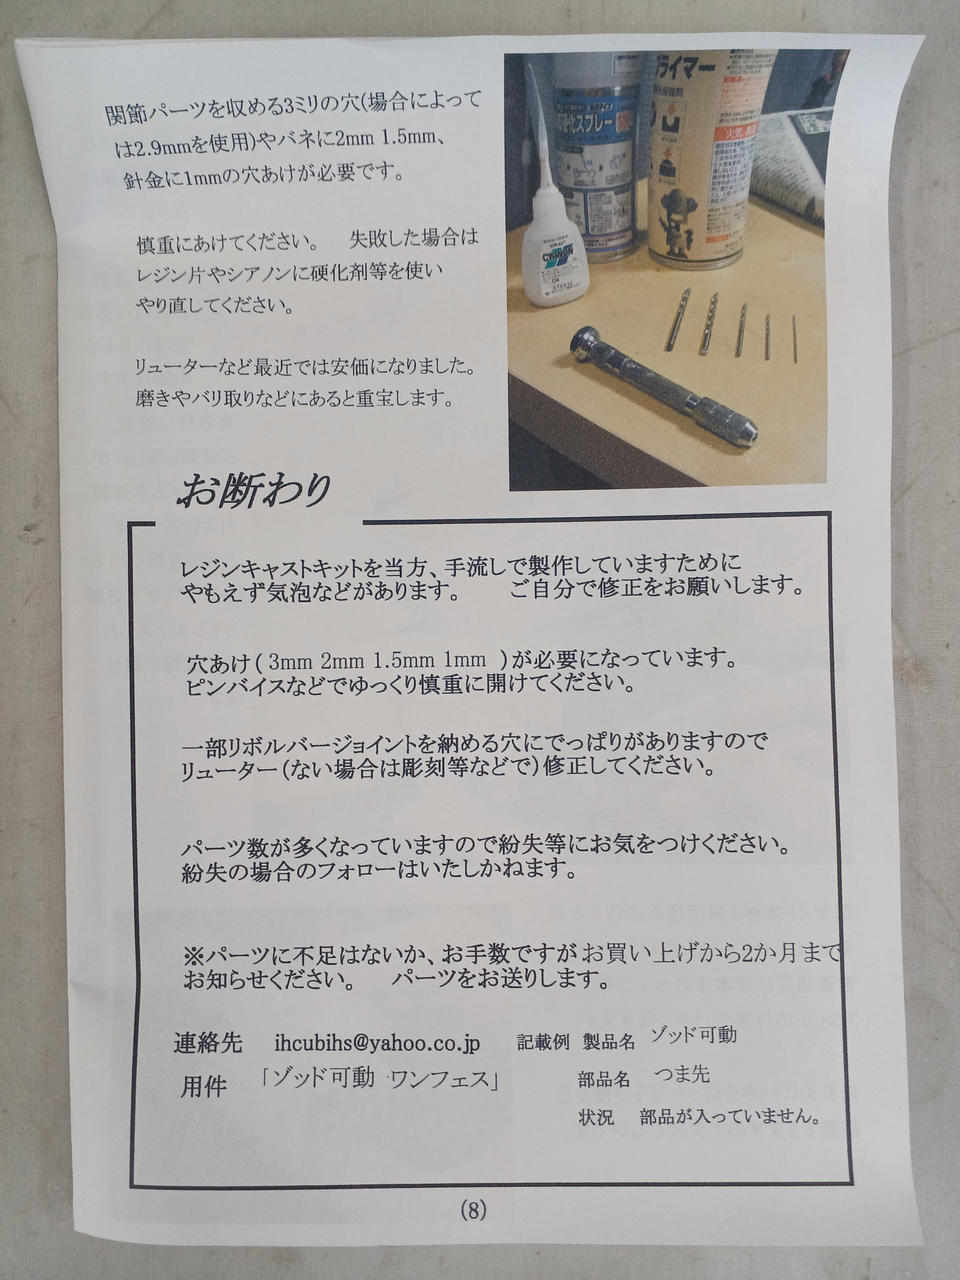 関節パーツを収める3ミリの穴(場合によって
は2.9mmを使用)やバネに2mm 1.5mm、
針金に1mmの穴あけが必要です。
慎重にあけてください。 失敗した場合は
レジン片やシアノンに硬化剤等を使い
やり直してください。
リューターなど最近では安価になりました。
磨きやバリ取りなどにあると重宝します。
硬化スプレー
プライマー
CYANON
お断わり
レジンキャストキットを当方、手流しで製作していますために
やもえず気泡などがあります。 ご自分で修正をお願いします。
穴あけ( 3mm 2mm 1.5mm 1mm )が必要になっています。
ピンバイスなどでゆっくり慎重に開けてください。
一部リボルバージョイントを納める穴にでっぱりがありますので
リューター(ない場合は彫刻等などで)修正してください。
パーツ数が多くなっていますので紛失等にお気をつけください。
紛失の場合のフォローはいたしかねます。
※パーツに不足はないか、お手数ですがお買い上げから2か月まで
お知らせください。 パーツをお送りします。
連絡先 ihcubihs@yahoo.co.jp 記載例 製品名 ゾッド可動
用件 「ゾッド可動 ワンフェス」 部品名 つま先
状況 部品が入っていません。
(8)